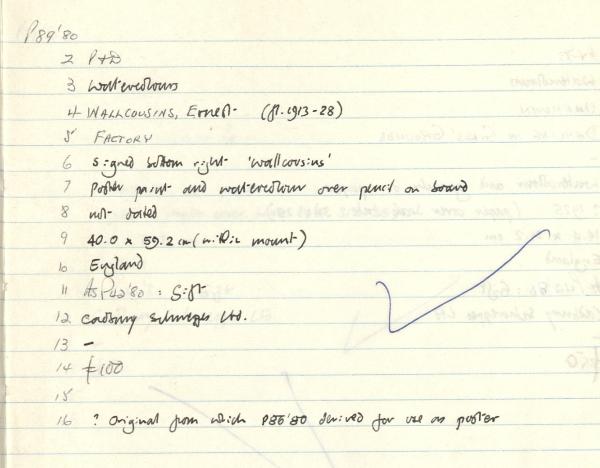 P89'80
2 P+D
3 Watercolours
4 WALLCOUSINS, Ernest (fl. 1913-28)
5 FACTORY
6 signed bottom right 'wallcousins'
7 Poster paint and watercolour over pencil on board
8 not dated
9 40.0 x 59.2 cm (within mount)
10 England
11 AS P42'80 : Gift
12 Cadbury Schweppes Ltd.
13 -
14 £100
15
16 ? Original from which P86'80 derived for use as poster